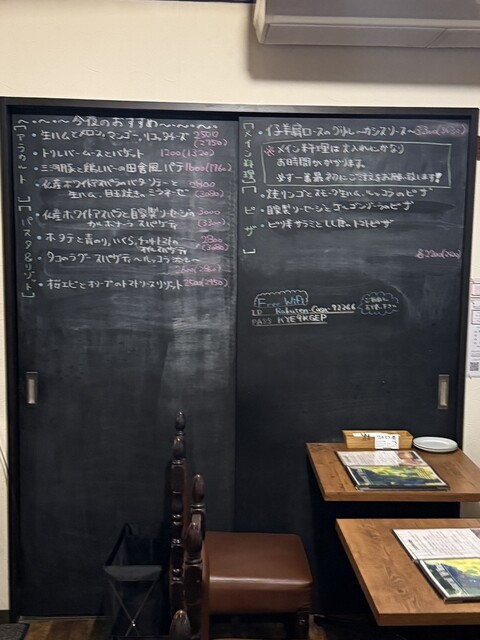 ～・～・～ 今夜のおすすめ ～・～・～
【アラカルト】
・生ハムとメロン、マンゴー、リコッタチーズ 2500
(2750)
・トリレバームースとバゲット 1200(1320)
・三河豚と鶏レバーの田舎風パテ 1600(1760)
・仏産ホワイトアスパラのバタソテーと
生ハム、目玉焼き、ミラネーゼ
(3080)
【パスタ&リゾット】
・仏産ホワイトアスパラと自家製ソーセージの 3000
カルボナーラ スパゲティ (3300)
・ホタテと青のり、いくら、チェリートマトの 2800
スパゲティ (3080)
・タコのラグー スパゲティ ～ルッコラ添え～
2600(2860)
・桜エビとオリーブのトマトソースリゾット 2500(2750)
【メイン料理】
・仔羊肩ロースのグリル ～カシスソース～ 3300(3630)
※メイン料理は火入れにかなり
お時間かかります。
必ず一番最初にご注文をお願い致します!
【ピザ】
・焼リンゴとスモーク生ハム、ルッコラのピザ
・自家製ソーセージとゴルゴンゾーラのピザ
・ピリ辛サラミとしし唐のトマトピザ
各2200(2420)
Free Wifi
ID Rakuten-Casa-92266
PASS KYE9KGEP